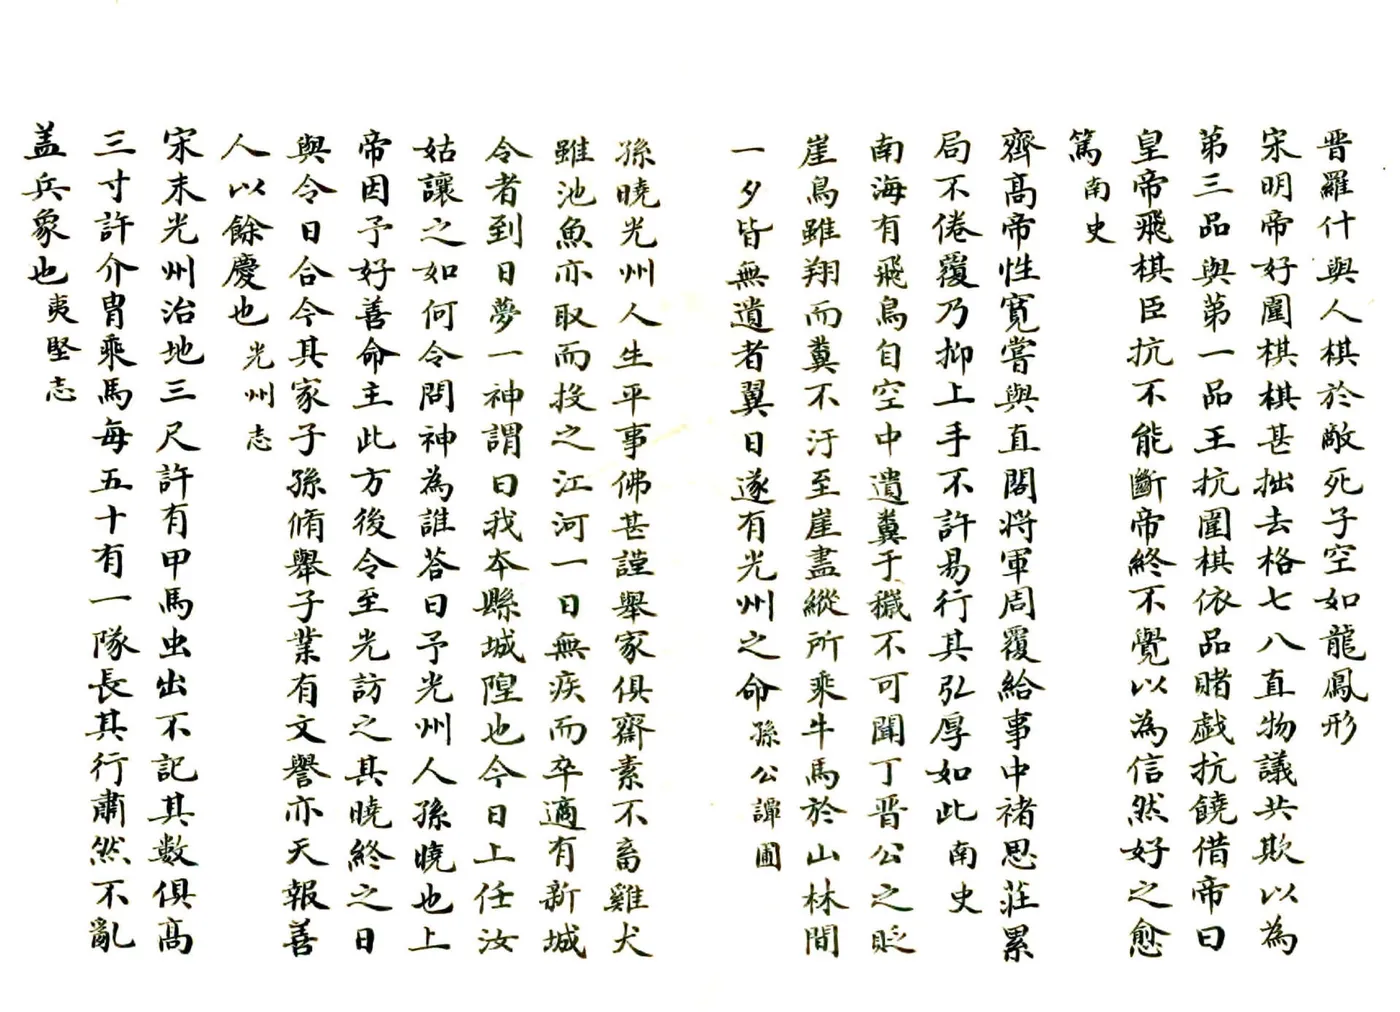 晋羅什與人棋於敵死子空如龍鳳形
宋明帝好圍棋棋甚拙去格七八直物議共欺以為
第三品與第一品王抗圍棋依品賭戲抗饒借帝曰
皇帝飛棋臣抗不能斷帝終不覺以為信然好之愈
篤 南史
齊高帝性寬嘗與直閣將軍周覆給事中褚思莊累
局不倦覆乃抑上手不許易行其弘厚如此 南史
南海有飛鳥自空中遺糞于穢不可聞丁晋公之貶
崖鳥雖翔而糞不汙至崖盡縱所乘牛馬於山林間
一夕皆無遺者翼日遂有光州之命 孫公譚圃
孫曉光州人生平事佛甚謹舉家俱齋素不畜雞犬
雖池魚亦取而投之江河一日無疾而卒適有新城
令者到日夢一神謂曰我本縣城隍也今日上任汝
姑讓之如何令問神為誰荅曰予光州人孫曉也上
帝因予好善命主此方後令至光訪之其曉終之日
與令日合今其家子孫脩舉子業有文譽亦天報善
人以餘慶也 光州志
宋末光州治地三尺許有甲馬虫出不記其數俱高
三寸許介冑乘馬每五十有一隊長其行肅然不亂
盖兵象也 夷堅志